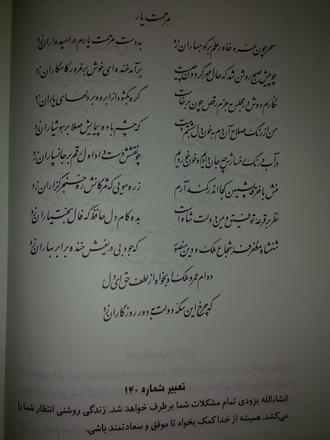 مرحمت یار
سحر چون خسرو خاور علم بر کوهساران زد به دست مرحمت یارم در امیدواران زد
چو پیش صبح روشن شد که حال مهر گردون چیست برآمد خنده‌ای خوش بر غرور کامکاران زد
نگارم دوش در مجلس به عزم رقص چون برخاست گره بگشود از ابرو و بر دلهای یاران زد
من از رنگ صلاح آن دم به خون دل بشستم دست که چشم باده پیمایش صلا بر هوشیاران زد
در آب و رنگ رخسارش چه جان دادیم و خون خوردیم چو نقشش دست داد اول رقم بر جانسپاران زد
منش با خرقه پشمین کجا اندر کمند آرم زره مویی که مژگانش ره خنجرگزاران زد
نظر بر قرعه توفیق و یمن دولت شاه است بده کام دل حافظ که فال بختیاران زد
شهنشاه مظفر فر شجاع ملک و دین منصور که جود بی دریغش خنده بر ابر بهاران زد
دوام عمر و ملک او بخواه از لطف حق ای دل
که چرخ این سکه دولت به دور روزگاران زد
تعبیر شماره ۱۴۰
انشاءالله بزودی تمام مشکلات شما برطرف خواهد شد. زندگی روشنی انتظار شما را
می‌کشد. همیشه از خدا کمک بخواه تا موفق و سعادتمند باشی.